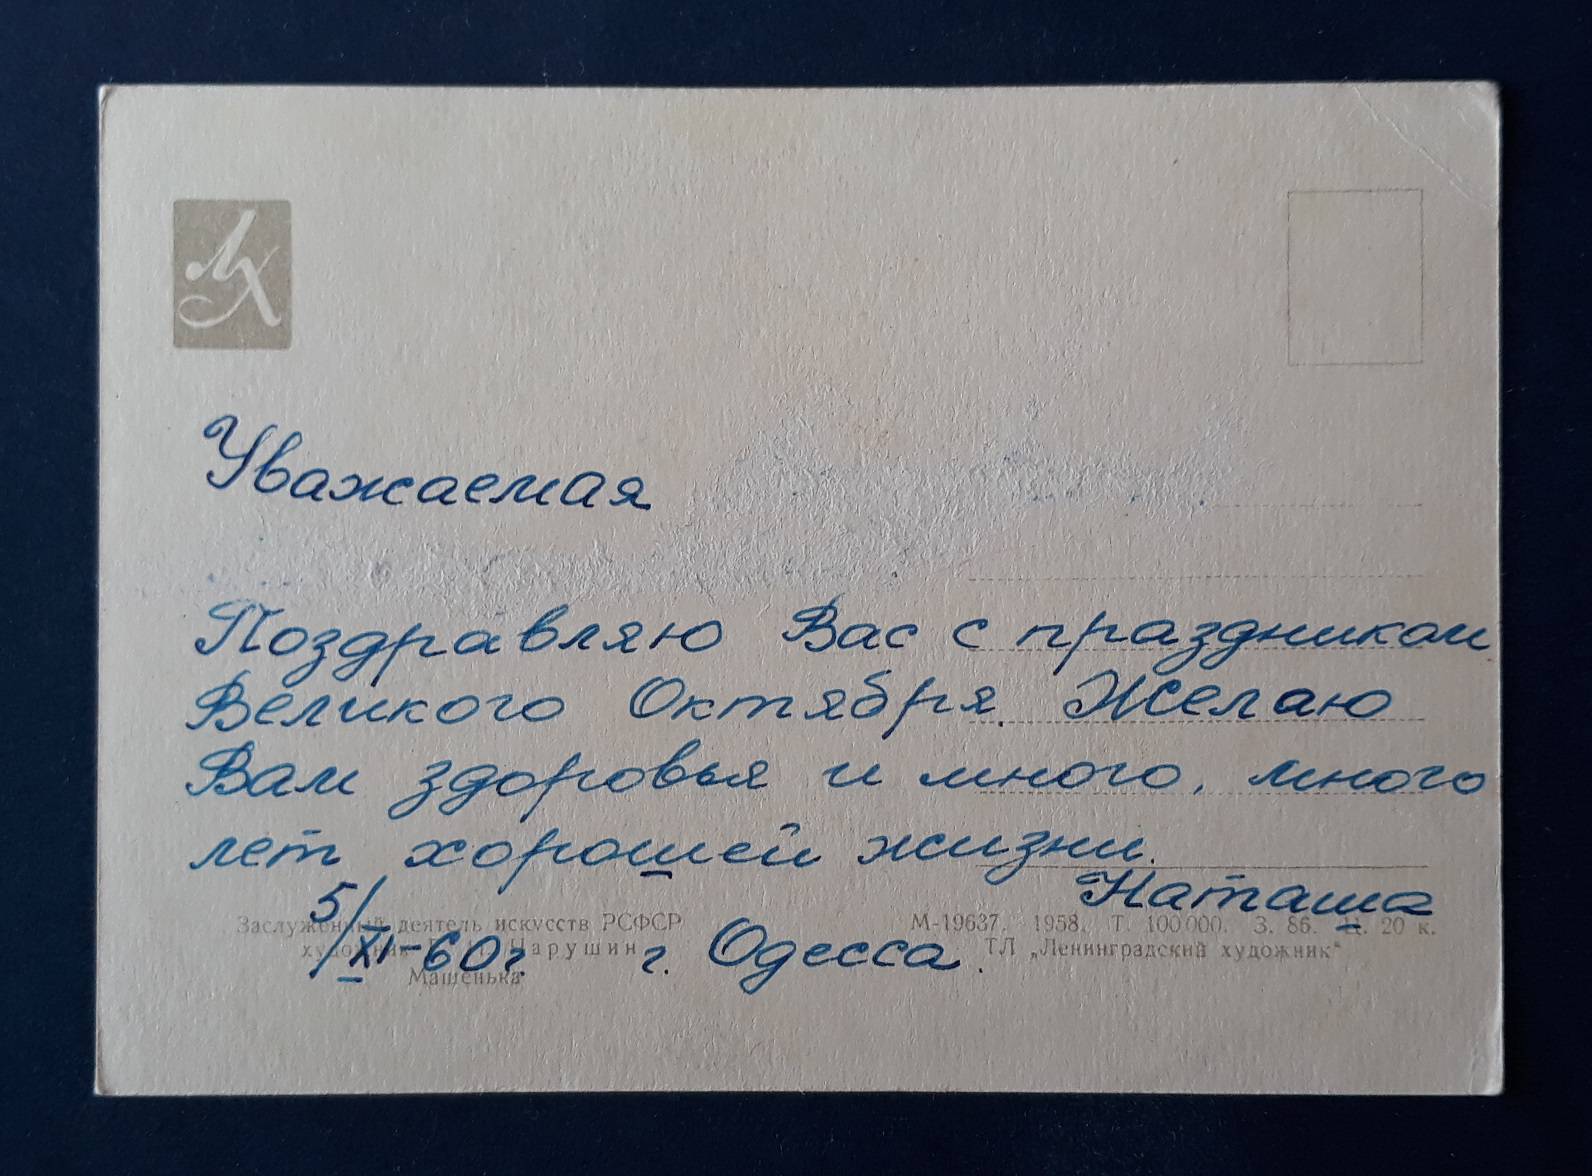 ЛХ
Уважаемая
Поздравляю Вас с праздником
Великого Октября. Желаю
Вам здоровья и много, много
лет хорошей жизни.
Наташа
5/XI-60г. г. Одесса.
Заслуженный деятель искусств РСФСР
художник Чарушин
Машенька
М-19637. 1958. Т. 100 000. З. 86. Ц. 20 к.
ТЛ „Ленинградский художник“